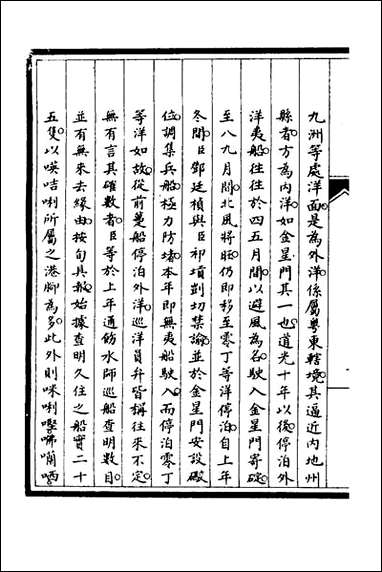 九洲等處洋面是為外洋係屬粵東轄境其逼近內地州
縣者方為內洋如金星門其一也道光十年以後停泊外
洋夷船往往於四五月間以避風為名駛入金星門寄碇
至八九月間北風將旺仍即移至零丁等洋停泊自上年
冬間臣鄧廷楨與臣祁𡎴剴切禁諭並於金星門安設礮
位調集兵船極力防堵本年即無夷船駛入而停泊零丁
等洋如故從前躉船停泊外洋巡洋員弁皆稱往來不定
無有言其確數者臣等於上年通飭水師巡船查明數目
並有無來去緣由按旬具報始據查明久住之船實二十
五隻以𠸄咭唎所屬之港腳為多此外則咪唎𠼤咈囒哂